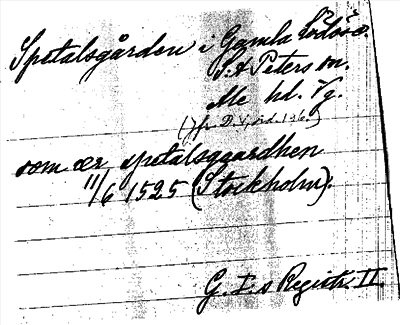 Spetalsgården i Gamla Lödöse
S:t Peters sn.
Ale hd. Vg.
(Jfr D. V, sid. 136.)
som ær spetalsgaardhen
11/6 1525 (Stockholm).
G. I:s Registr. II.